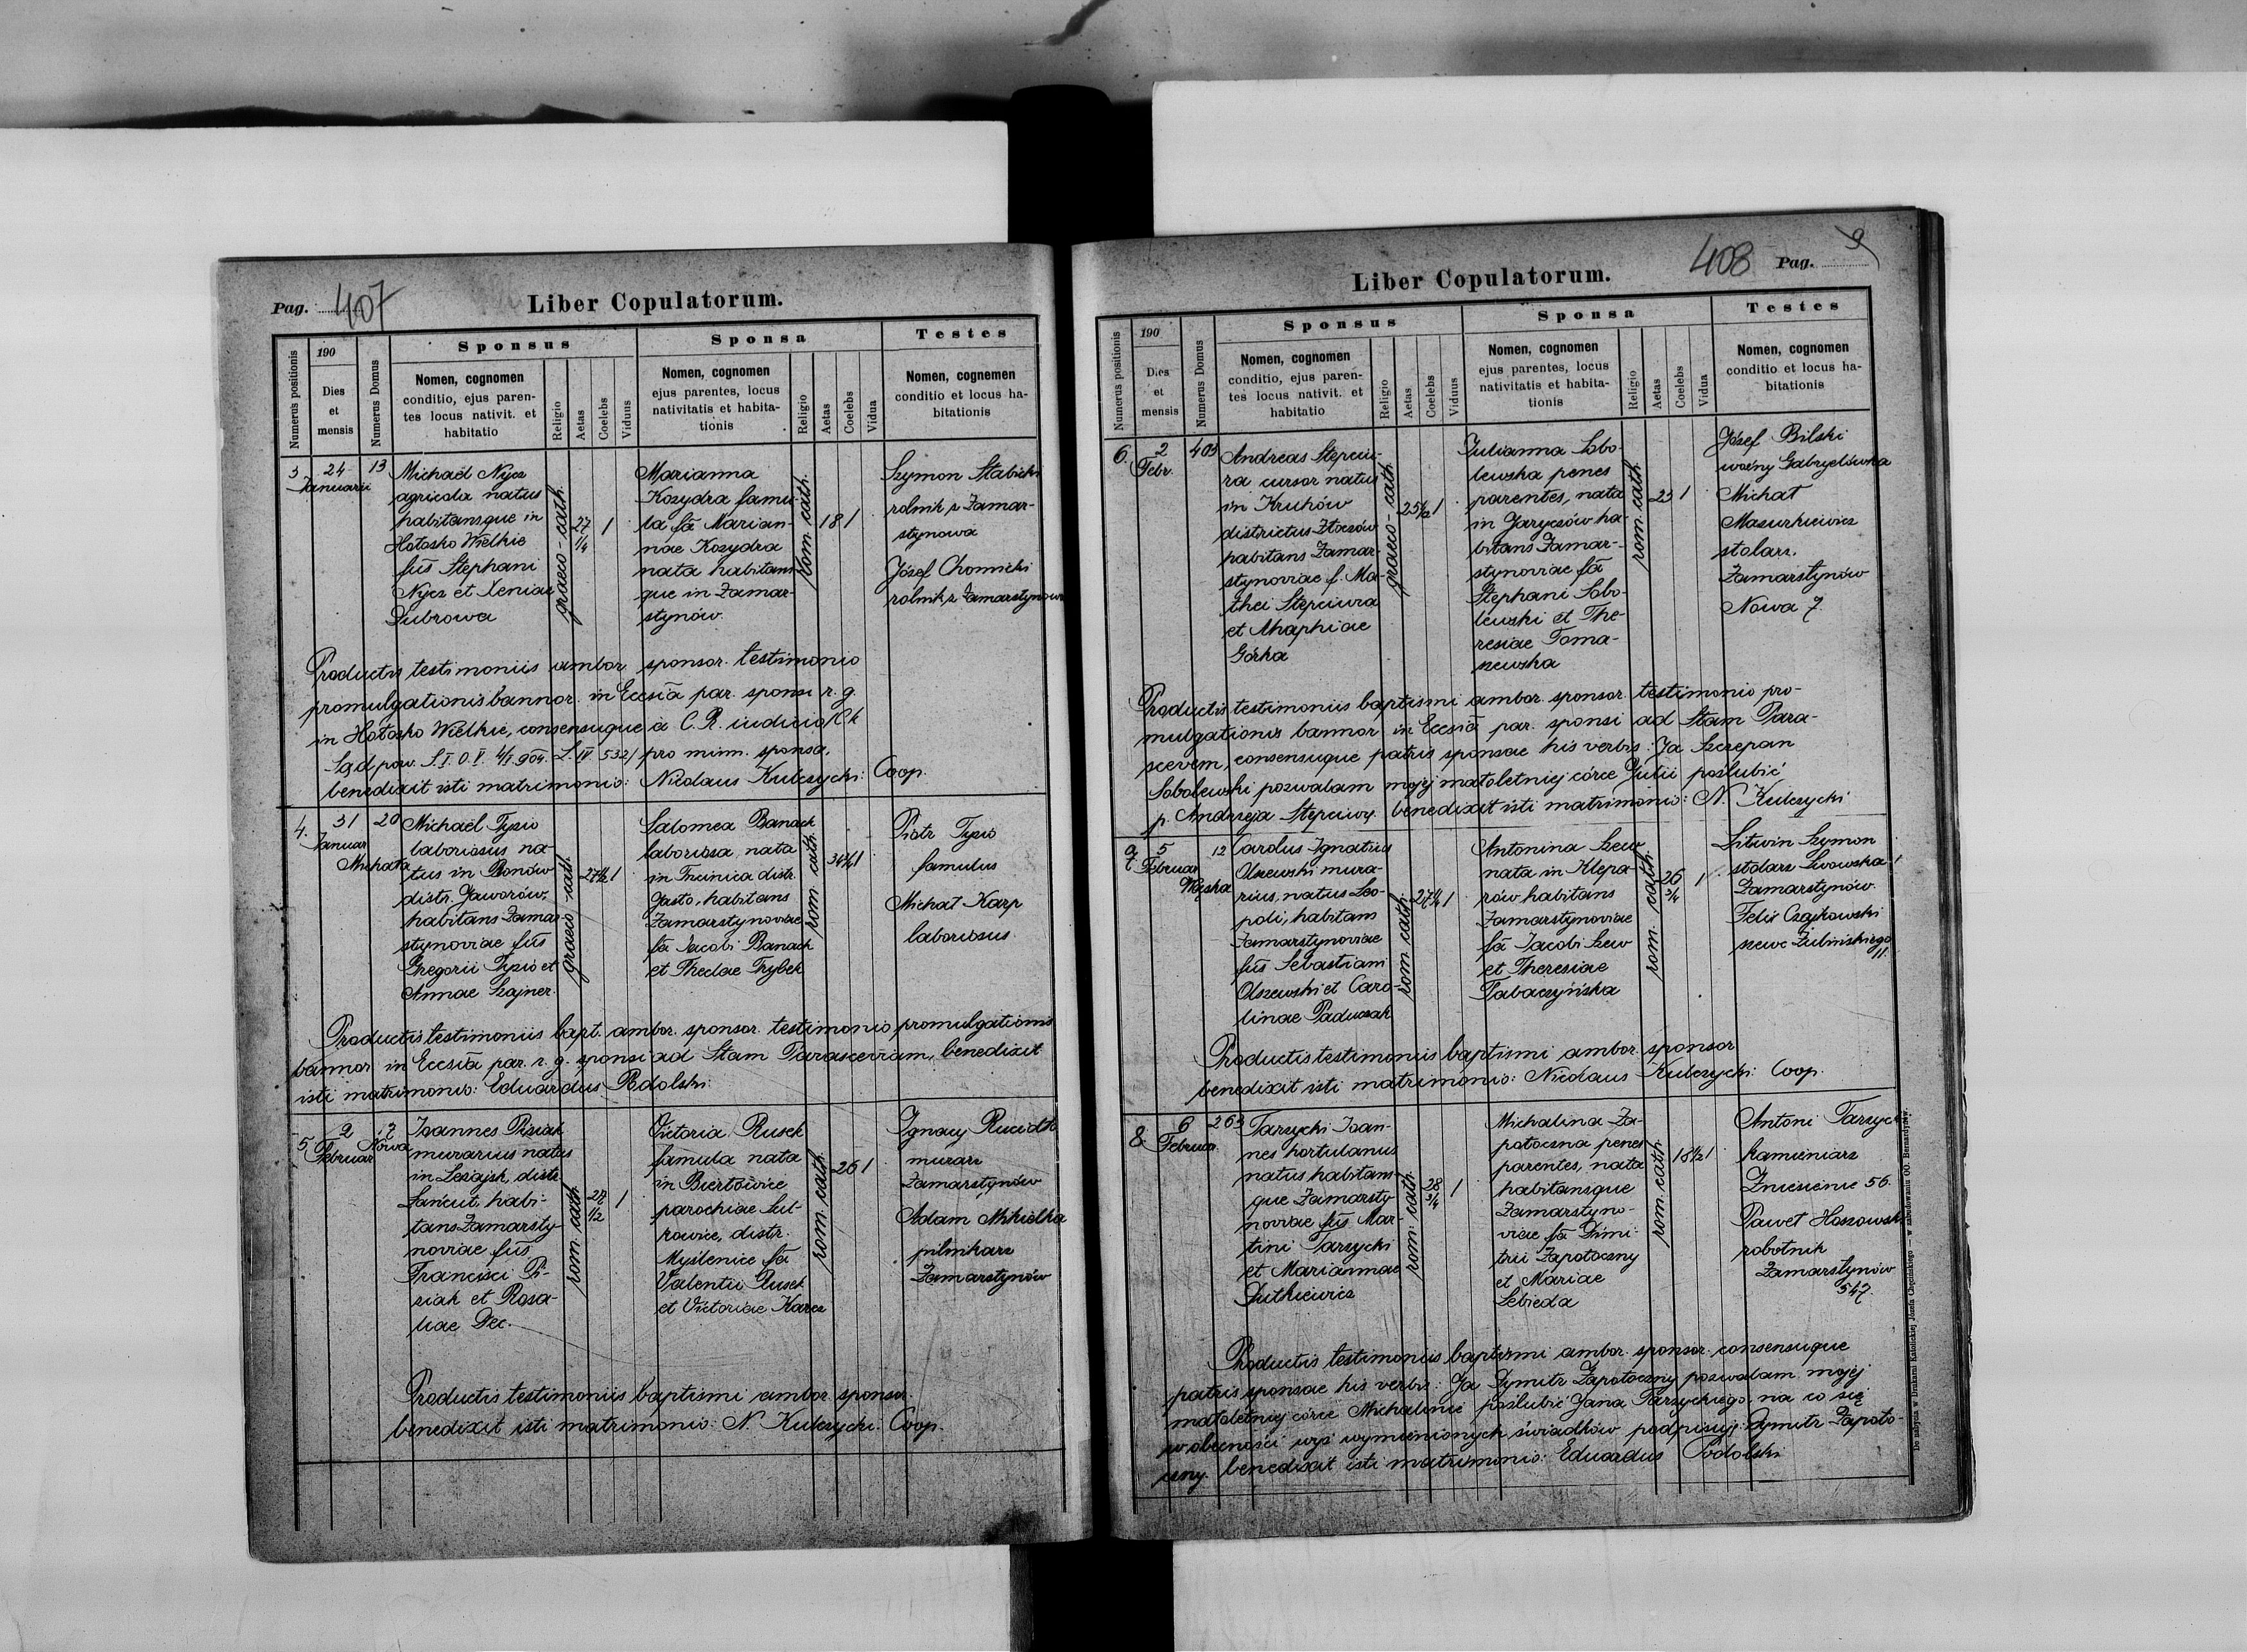 Pag. 407
Liber Copulatorum.
Numerus positionis
190
Dies
et
mensis
Numerus Domus
Sponsus
Nomen, cognomen
conditio, ejus paren-
tes locus nativit. et
habitatio
Religio
Aetas
Coelebs
Viduus
Sponsa
Nomen, cognomen
ejus parentes, locus
nativitatis et habita-
tionis
Religio
Aetas
Coelebs
Vidua
Testes
Nomen, cognemen
conditio et locus ha-
bitationis
3
24
Januarii
13
Michaël Nycz
agricola natus
habitansque in
Hołosko Wielkie
fiūs Stephani
Nycz et Xeniae
Dubrowa
graeco-cath.
27
1/4
1
Marianna
Kozydra famu-
la fā Marian-
nae Kozydra
nata habitans-
que in Zamar-
stynów.
rom. cath.
18
1
Szymon Stabicki
rolnik z Zamar-
stynowa
Józef Chomicki
rolnik z Zamarstynowa
Productis testimoniis ambor. sponsor. testimonio
promulgationis bannor. in Eccsiā par. sponsi r. g.
in Hołosko Wielkie, consensuque à C. R. iudicio /C. k
Sąd pow. S. I. O. V. 4/I 904. L. IV 532/ pro minn. sponsa,
benedixit isti matrimonio: Nicolaus Kulczycki: Coop.
4.
31
Januar
Michała
20
Michaël Tyzio
laboriosus na-
tus in Bonów
distr. Jaworów,
habitans Zamar-
stynoviae fiūs
Gregorii Tyzio et
Annae Szajner.
graeco-cath.
27 1/2
1
Salomea Banach
laboriosa nata
in Trcinica distr.
Jasło, habitans
Zamarstynoviae
fā Jacobi Banach
et Theclae Trybek
rom cath.
34 1/2
1
Piotr Tyzio
famulus
Michał Karp
laboriosus.
Productis testimoniis bapt. ambor. sponsor. testimonio promulgationis
bannor in Eccsiā par. r. g. sponsi ad Stam Parasceviam, benedixit
isti matrimonio: Eduardus Podolski.
5
2
Februar
17
Nowa
Joannes Pisiak
murarius natus
in Leżajsk, distr
Łańcut, habi-
tans Zamarsty-
noviae fiūs
Francisci Pi-
siak et Rosa-
liae Dec.
rom. cath.
28
1/2
1
Victoria Rusek
famula nata
in Biertowice
parochiae Suł-
kowice, distr.
Myślenice fā
Valentii Rusek
et Victoriae Karcz
rom. cath.
26
1
Ignacy Ruciak
murarz
Zamarstynów
Adam Mikielka
pilnikarz
Zamarstynów
Productis testimoniis baptismi ambor. sponsor.
benedixit isti matrimonio: N. Kulczycki: Coop.
408 Pag. 9
Liber Copulatorum.
Numerus positionis
190
Dies
et
mensis
Numerus Domus
Sponsus
Nomen, cognomen
conditio, ejus paren-
tes locus nativit. et
habitatio
Religio
Aetas
Coelebs
Viduus
Sponsa
Nomen, cognomen
ejus parentes, locus
nativitatis et habita-
tionis
Religio
Aetas
Coelebs
Vidua
Testes
Nomen, cognomen
conditio et locus ha-
bitationis
6
2
Febr.
403
Andreas Stepciu-
ra cursor natus
in Kruhów
districtus Złoczów
habitans Zamar-
stynoviae f. Ma-
thei Stepciura
et Ahaphiae
Górka
graeco-cath.
25 1/2
1
Julianna Sobo-
lewska penes
parentes, nata
in Jaryczów ha-
bitans Zamar-
stynoviae fā
Stephani Sobo-
lewski et The-
resiae Toma-
szewska
rom. cath.
23
1
Józef Bilski
woźny Gabryelówka
Michał
Mazurkiewicz
stolarz.
Zamarstynów
Nowa 7.
Productis testimoniis baptismi ambor. sponsor. testimonio pro-
mulgationis bannor in Eccsiā par. sponsi ad Stam Para-
scevem, consensuque patris sponsae his verbis: Ja Szczepan
Sobolewski pozwalam mojej małoletniej córce Julii poślubić
p. Andrzeja Stepciurę. benedixit isti matrimonio: N. Kulczycki
7
5
Februar
Wąska
12
Carolus Ignatius
Olszewski mura-
rius, natus Leo-
poli, habitans
Zamarstynoviae
fiūs Sebastiani
Olszewski et Caro-
linae Paduszak
rom cath.
27 1/4
1
Antonina Szew
nata in Klepa-
rów habitans
Zamarstynoviae
fā Jacobi Szew
et Theresiae
Tabaczyńska
rom. cath.
26
3/4
1
Litwin Szymon
stolarz Lwowska 1
Zamarstynów.
Felix Czajkowski
szewc Żulińskiego
11.
Productis testimoniis baptismi ambor. sponsor
benedixit isti matrimonio: Nicolaus Kulczycki: Coop.
8
6
Februar.
263
Tarzycki Joan-
nes hortulanus
natus habitans-
que Zamarsty-
noviae fiūs Mar-
tini Tarzycki
et Mariannae
Dutkiewicz
rom: cath.
28
3/4
1
Michalina Za-
potoczna penes
parentes, nata
habitansque
Zamarstyno-
viae fā Dimi-
trii Zapotoczny
et Mariae
Lebieda
rom. cath.
18 1/2
1
Antoni Tarzycki
kamieniarz
Zniesienie 56.
Paweł Hoszowski
robotnik
Zamarstynów
547.
Productis testimoniis baptismi ambor. sponsor. consensuque
patris sponsae his verbis: Ja Dymitr Zapotoczny pozwalam mojej
małoletniej córce Michalinie poślubić Jana Tarzyckiego, na co się
w obecności wyż wymienionych świadków podpisuję: Dymitr Zapoto-
czny. benedixit isti matrimonio: Eduardus Podolski
Do nabycia w Drukarni Katolickiej Józefa Chęcińskiego — w zabudowaniu OO. Bernardynów.